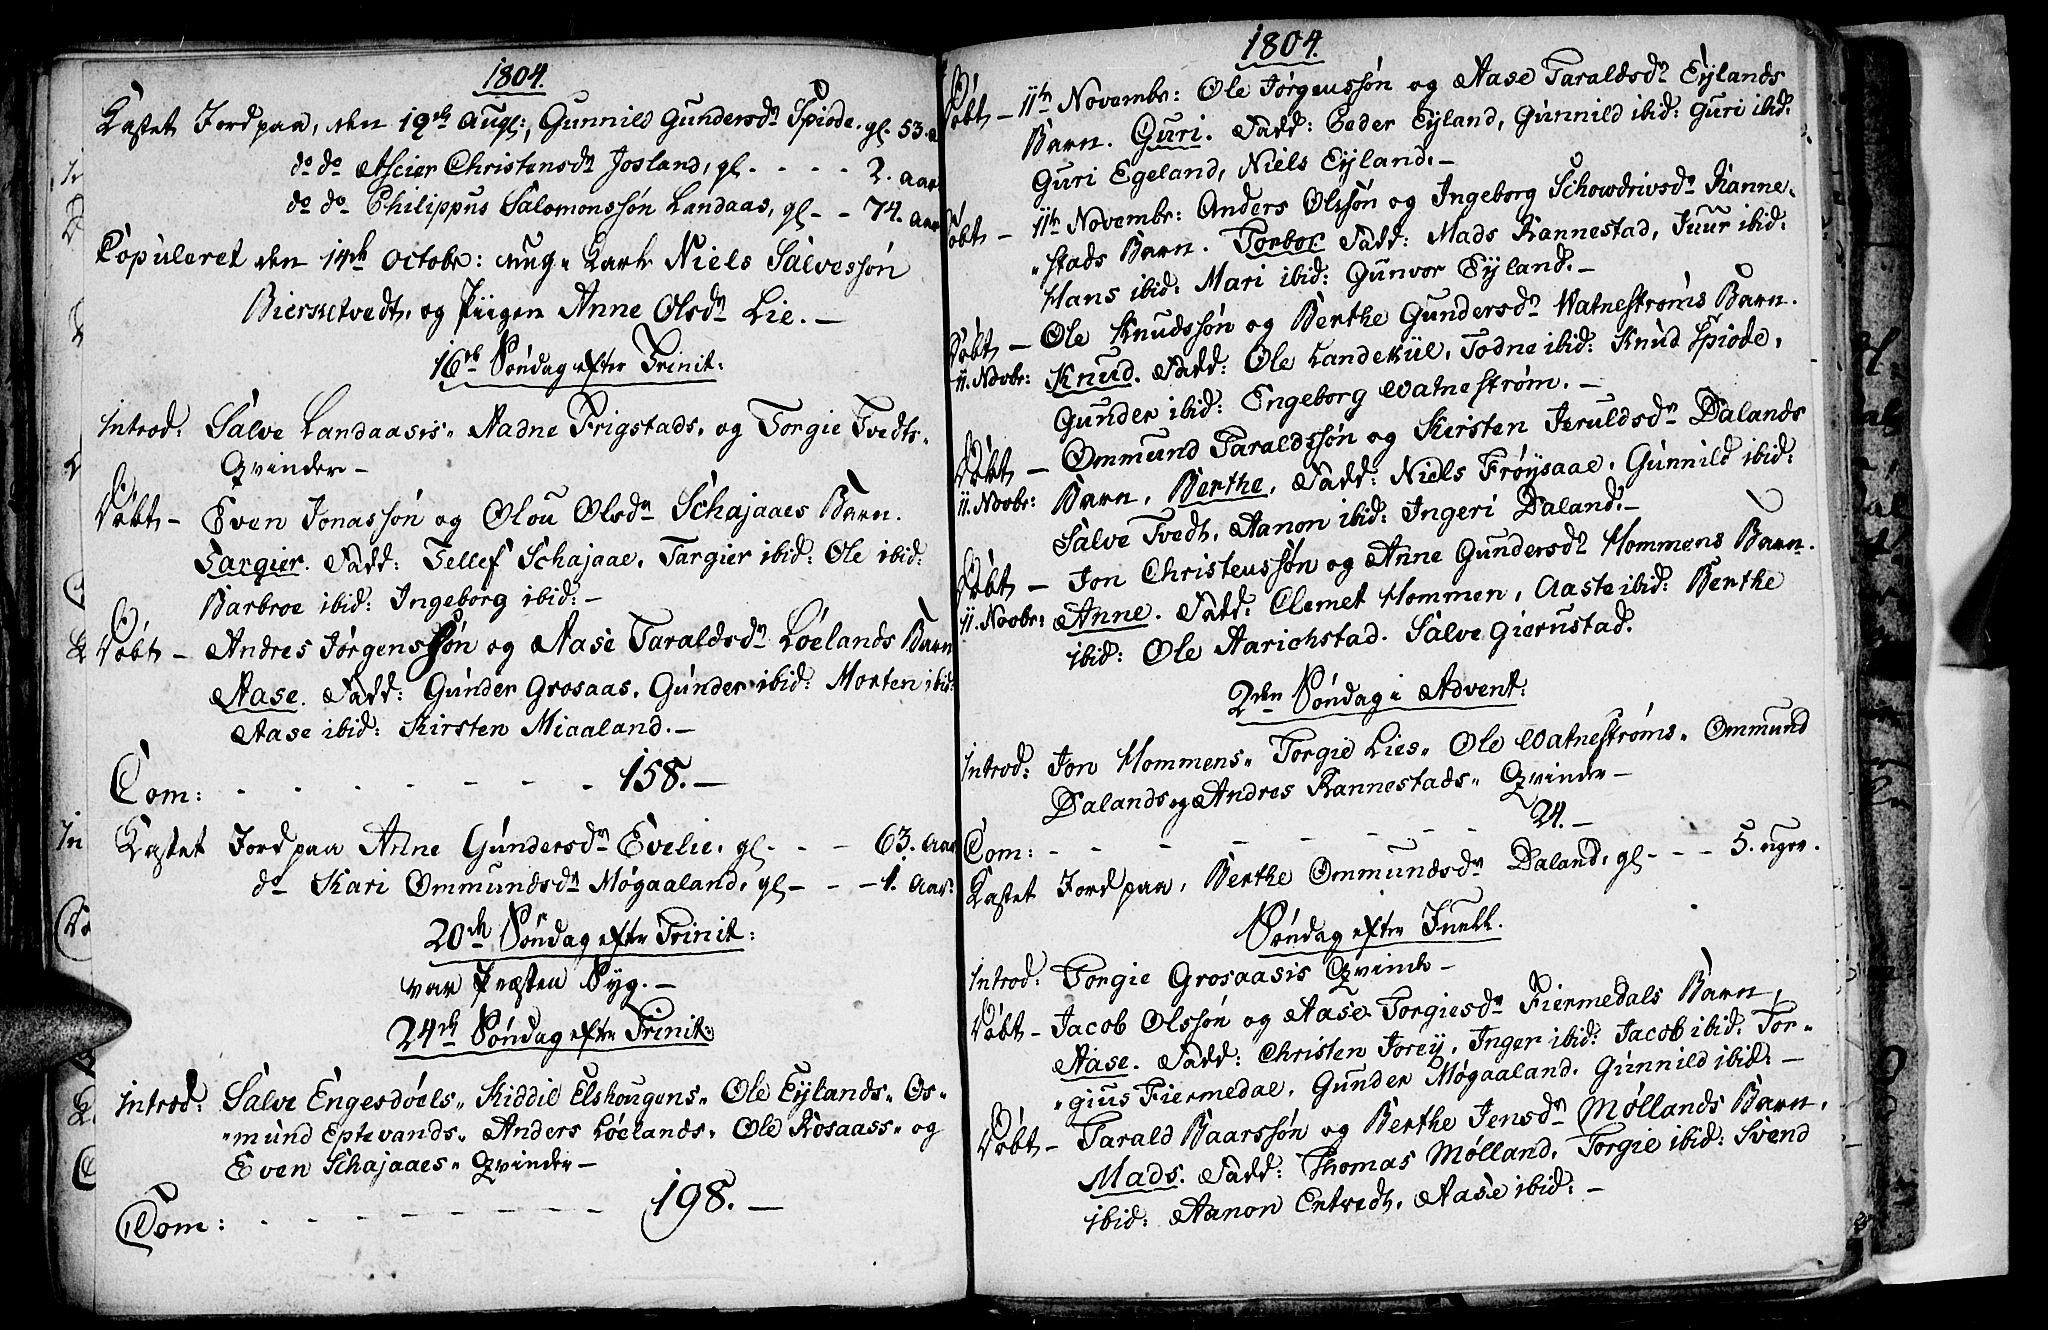 1804.
Kastet Jord paa, den 19de Augl:, Gunnild Gundersdr Spiode. gl. 53. a
do do Ascier Christensdr Josland, gl. - - - - 2. aar
do do Philippus Salomonssøn Landaas, gl - - 74. aar
Copuleret den 14de Octobr: ung. Karl Niels Salvessøn
Bierketvedt, og Piigen Anne Olsdr Lie. -
16de Søndag efter Trinit:
Introd: Salve Landaasis, Aadne Frigstads, og Torgie Tvedts-
Qvinder -
Døbt - Even Jonassøn og Olou Olsdr Schajaaes Barn.
Targier. Fadd: Tellef Schajaae, Targier ibid: Ole ibid:
Barbroe ibid: Ingeborg ibid: -
Døbt - Andres Jørgenssøn og Aase Taraldsdr Løelands Barn
Aase. Fadd: Gunder Grosaas, Gunder ibid: Morten ibid:
Aase ibid: Kirsten Miaaland. -
Com: - - - - - - - 158. -
Kastet Jord paa Anne Gundersdr Evelie, gl. - - - 63. Aar
do Kari Ommundsdr Møgaaland, gl - - - 1. Aar:
20de Søndag efter Trinit:
var Præsten Syg. -
24de Søndag efter Trinit:
Introd: Salve Engesdøels, Kiddil Elshougens, Ole Eylands, Os-
"mund Eptevands, Anders Løelands, Ole Rosaass, og
Even Schajaaes, Qvinder -
Com: - - - - - - - - 198. -
1804.
Døbt - 11te Novembr: Ole Jørgenssøn og Aase Taraldsdr Eylands
Barn. Guri. Fadd: Peder Eyland, Gunnild ibid: Guri ibid:
Guri Egeland, Niels Eyland. -
Døbt - 11te Novembr: Anders Olssøn og Ingeborg Schowdrivsdr Ranne-
"stads Barn. Torbor Fadd: Mads Rannestad, Juur ibid:
Hans ibid: Mari ibid: Gunvor Eyland. -
Døbt - Ole Knudssøn og Berthe Gundersdr Watnestrøms Barn.
11. Novbr: Knud. Fadd: Ole Landekiil, Todne ibid: Knud Spiode,
Gunder ibid: Engeborg Watnestrøm. -
Døbt - Ommund Taraldssøn og Kirsten Jeruldsdr Dalands
11. Novbr: Barn, Berthe, Fadd: Niels Frøysaae, Gunnild ibid:
Salve Tvedt, Aanon ibid: Ingeri Daland. -
Døbt - Jon Christenssøn og Anne Gundersdr Hommens Barn.
11. Novbr: Anne. Fadd: Clemet Hommen, Aaste ibid: Berthe
ibid: Ole Aarichstad. Salve Giernstad.
2den Søndag i Advent:
Introd: Jon Hommens, Torgie Lies, Ole Watnestrøms, Ommund
Dalands og Andres Rannestads, Qvinder -
Com: - - - - - - - - 24. -
Kastet Jord paa, Berthe Ommundsdr Daland, gl - - - 5. uger.
Søndag efter Juell.
Introd: Torgie Grosaasis Qvinde -
Døbt - Jacob Olssøn og Aase Torgiesdr Fiermedals Barn,
Aase. Fadd: Christen Jorey, Inger ibid: Jacob ibid: Tor-
"gius Fiermedal, Gunder Møgaaland, Gunnild ibid: -
Døbt - Tarald Baarssøn og Berthe Jensdr Møllands Barn,
Mads. Fadd: Thomas Mølland, Torgie ibid: Svend
ibid: Aanon Entvedt, Aase ibid: -